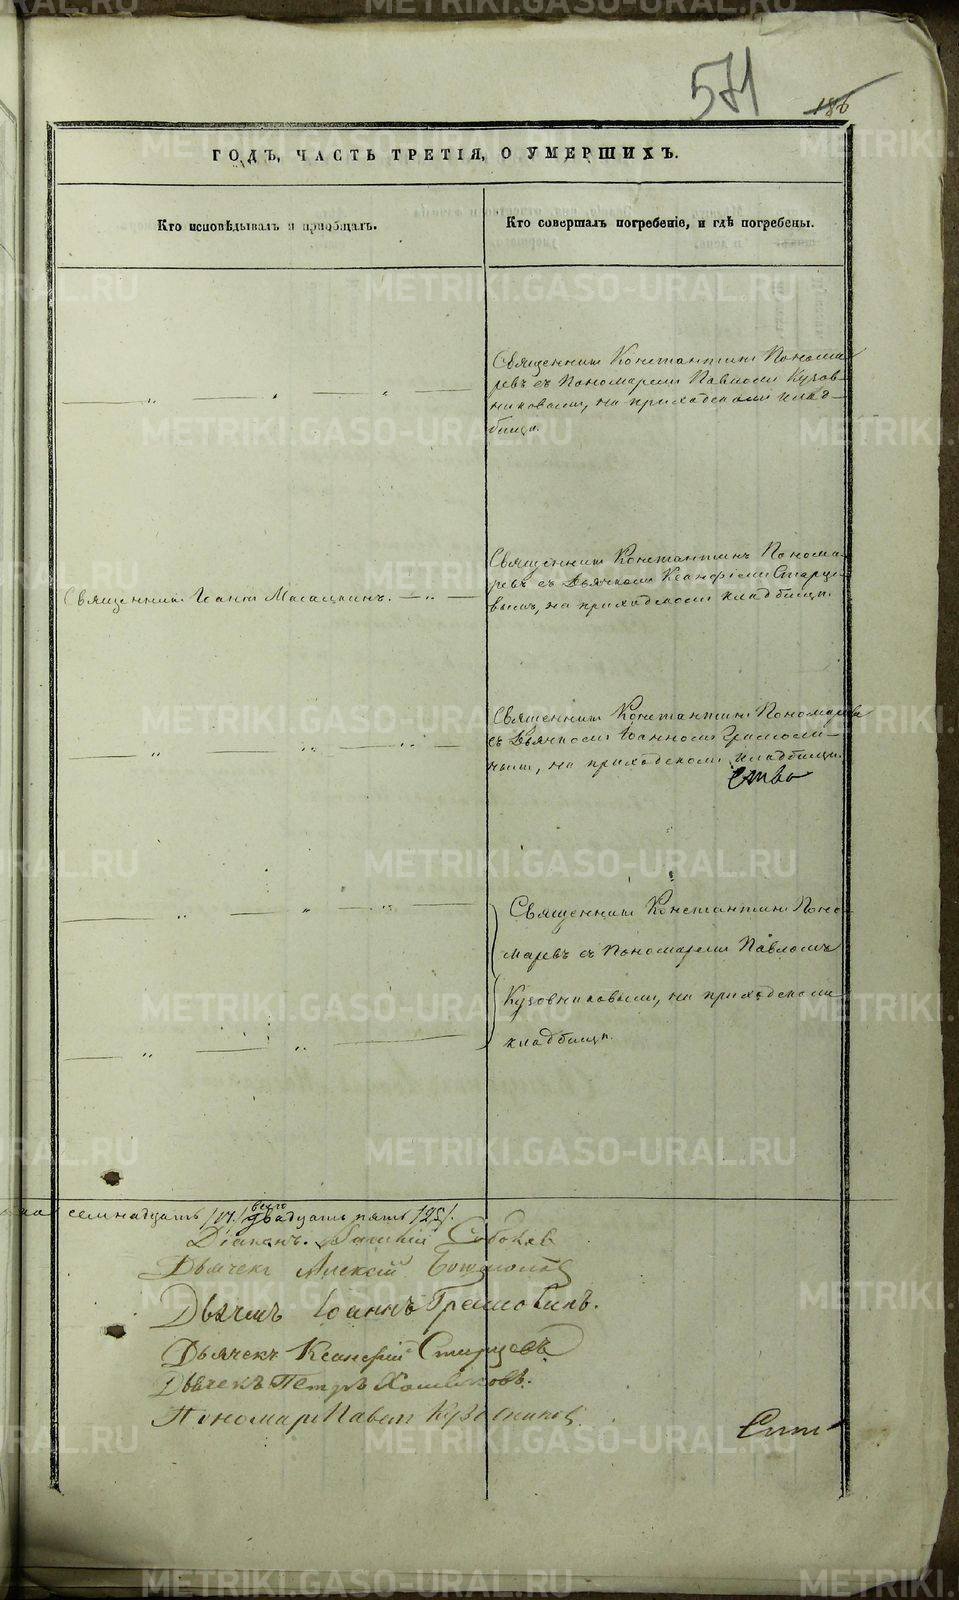 571
186
ГОДЪ, ЧАСТЬ ТРЕТІЯ, О УМЕРШИХЪ.
Кто исповѣдывалъ и пріобщалъ.
Кто совершалъ погребеніе, и гдѣ погребены.
Священникъ Константинъ Понома-
ревъ съ Пономаремъ Павломъ Кузов-
никовымъ, на приходскомъ клад-
бищѣ.
Священникъ Іоаннъ
Священникъ Константинъ Понома-
ревъ съ Дьячкомъ Ксанфіемъ Старце-
вымъ, на приходскомъ кладбищѣ.
Священникъ Константинъ Пономаревъ
съ Дьячкомъ Іоанномъ
на приходскомъ кладбищѣ.
Священникъ Константинъ Поно-
маревъ съ Пономаремъ Павломъ
Кузовниковымъ, на приходскомъ
кладбищѣ.
семнадцать /17/ всего двадцать пять /25/.
Діаконъ
Дьячекъ Алексій
Дьячекъ Іоаннъ
Дьячекъ Ксанфій Старцевъ
Дьячекъ Петръ
Пономарь Павелъ Кузовниковъ
METRIKI.GASO-URAL.RU